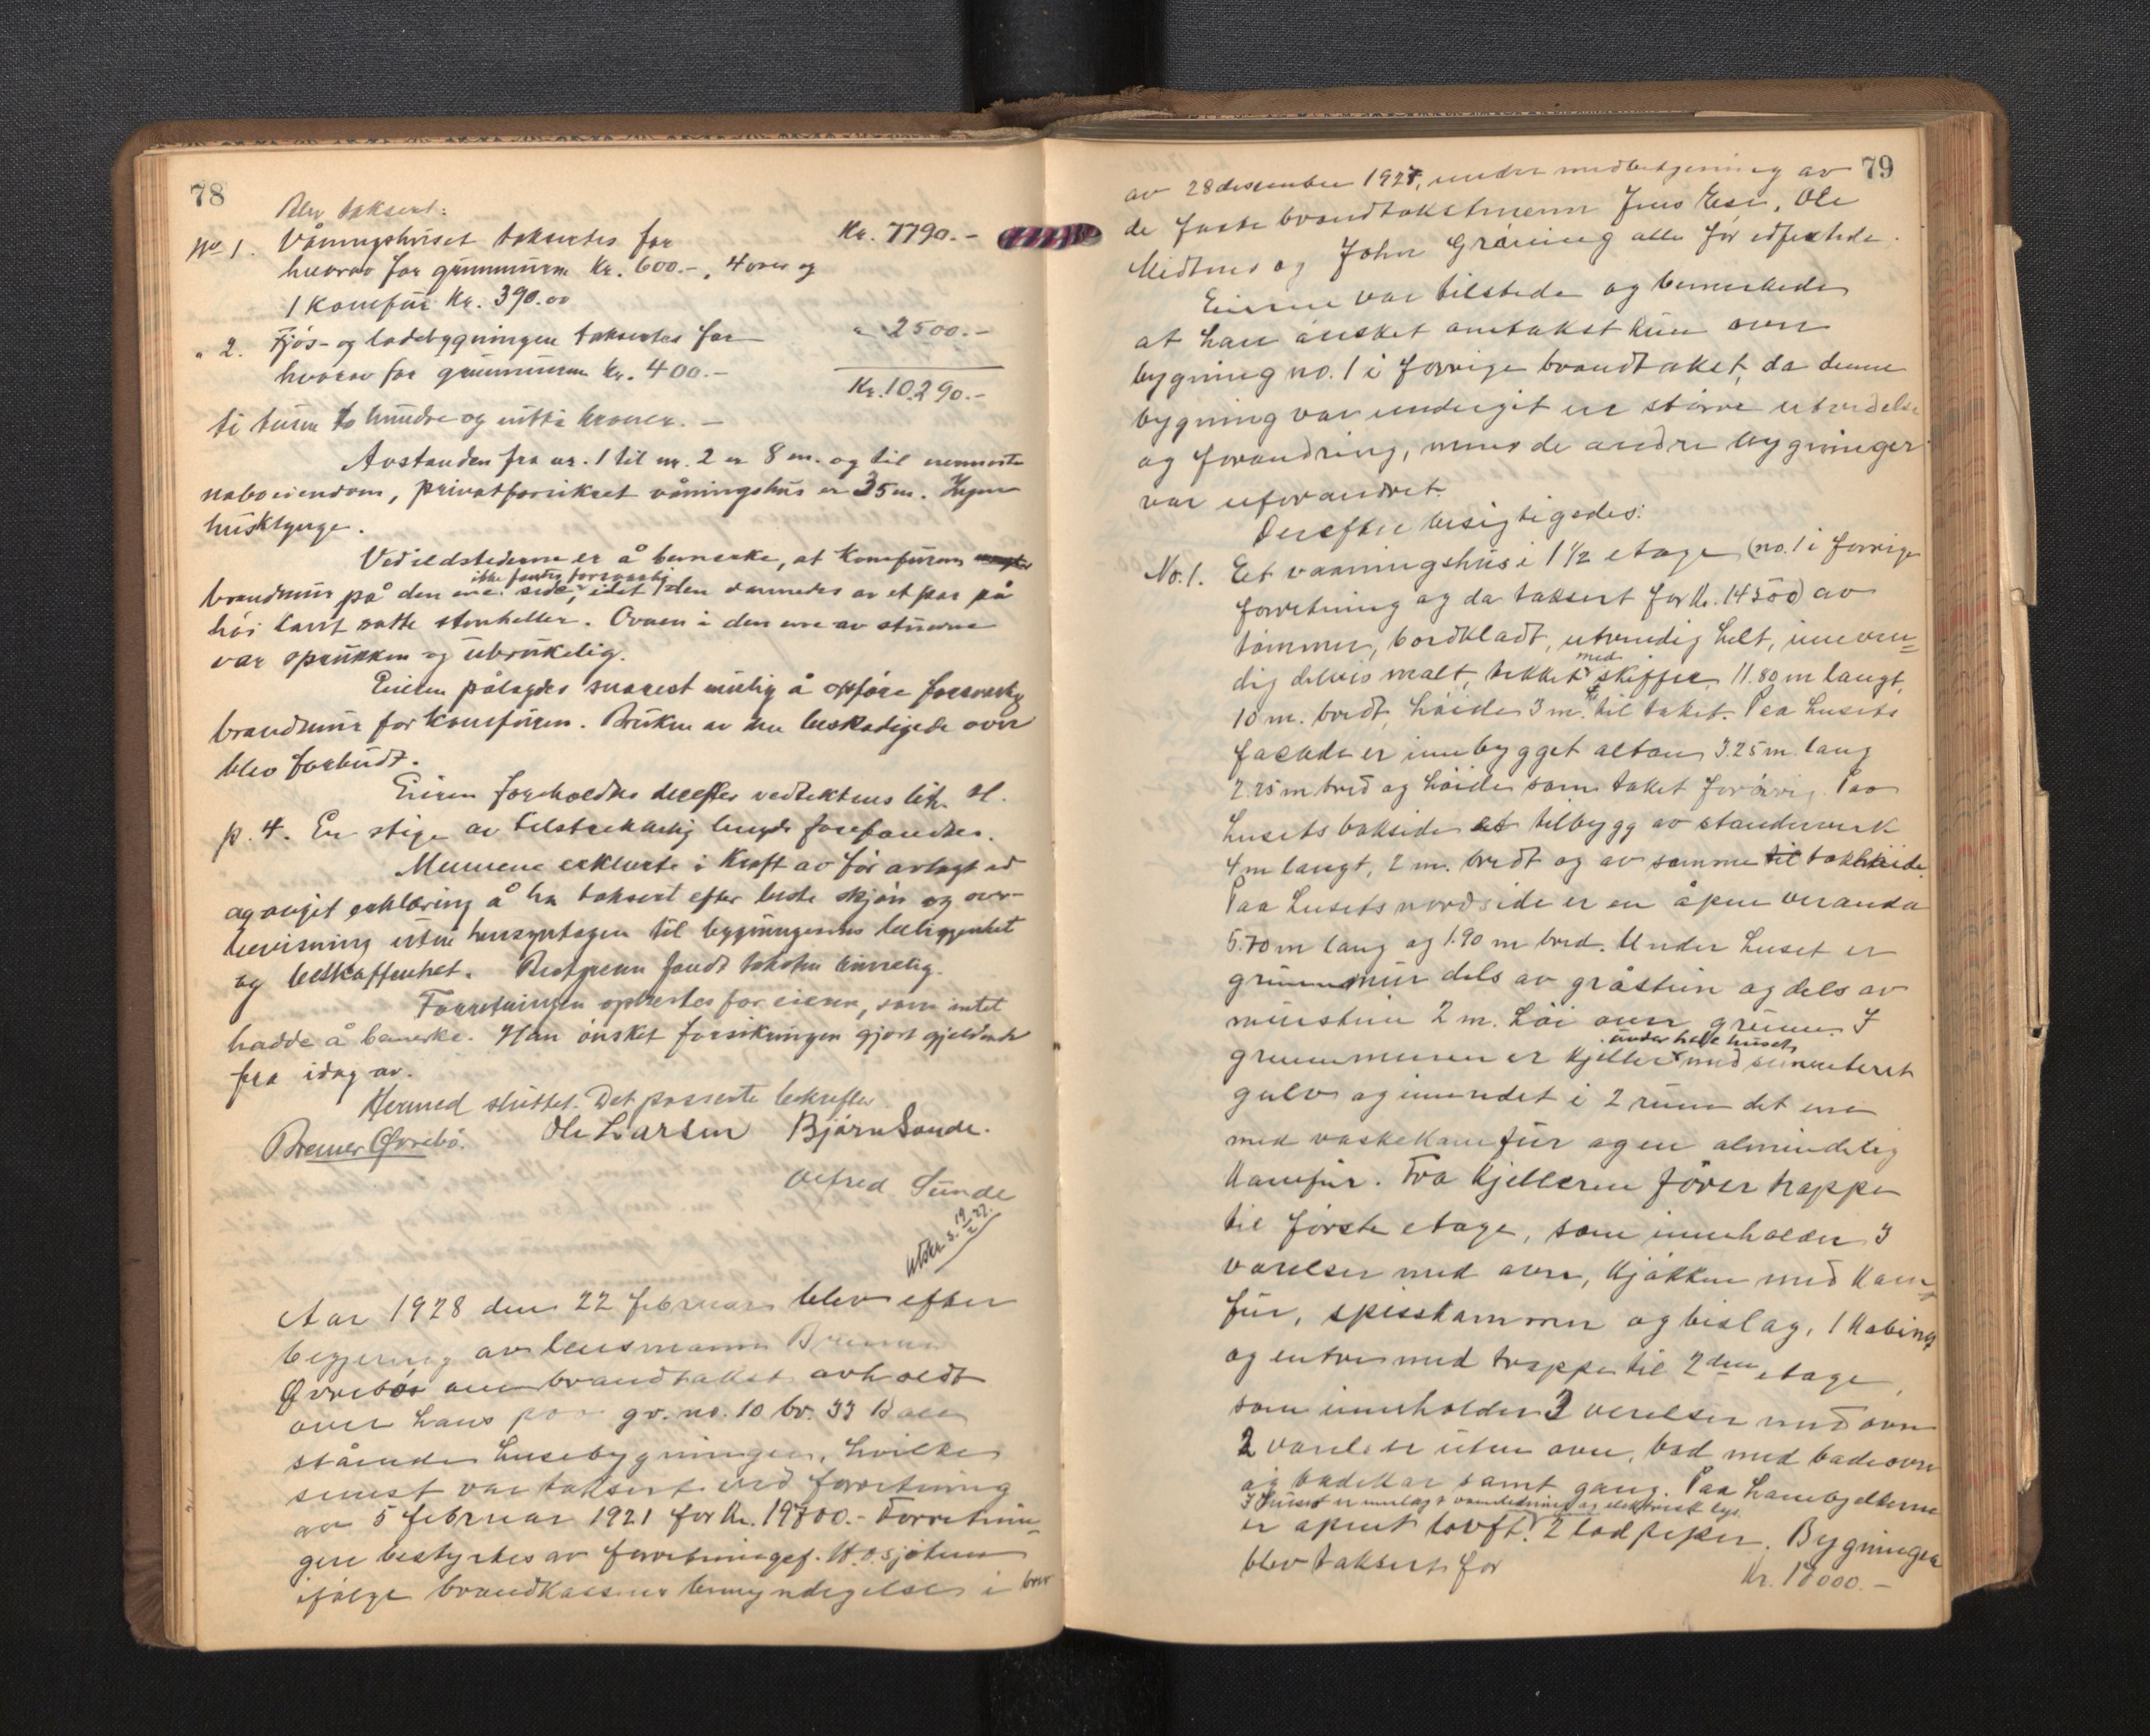 78
Blev taksert:
No 1. Våningshuset taksertes for Kr. 7790.-
hvorav for grunnmuren Kr. 600.-, 4 ovner og
1 komfur Kr. 390.00
" 2. Fjøs- og ladebygningen taksertes for " 2500.-
hvorav for grunnmuren kr. 400.-
Kr. 10290.-
ti tusen to hundre og nitti kroner. -
Avstanden fra nr. 1 til nr. 2 er 8 m. og til nermeste
naboeiendom, privatforsikret våningshus er 35 m. Ingen
husklynge.
Ved ildstederne er å bemerke, at komfuren
brandmur på den ene side ikke fantes forsvarlig, idet den dannedes av et par på
høi kant satte stenheller. Ovnen i den ene av stuerne
var sprukken og ubrukelig.
Eieren pålagdes snarest mulig å opføre forsvarlig
brandmur for komfuren. Bruken av den beskadigede ovn
blev forbudt.
Eieren foreholdtes derefter vedtektens litr. H.
p. 4. En stige av tilstrekkelig lengde forefandtes.
Mennene erklærte i kraft av før avlagt ed
og avgit erklæring å ha taksert efter beste skjøn og over-
bevisning uten hensyntagen til bygningenes beliggenhet
og beskaffenhet. Bestyreren fandt taksten rimelig.
Forretningen oplestes for eieren, som intet
hadde å bemerke. Han ønsket forsikringen gjort gjeldende
fra idag av.
Hermed sluttet. Det passerte bekreftes
Bremer Øvrebø. Ole Larsen Bjarne Sande.
Alfred Sunde
Utskr. s. 19/2 27.
Aar 1928 den 22 februar blev efter
begjering av lensmann Bremer
Øvrebø ombrandtakst avholdt
over hans paa gr. no. 10 br. 33
stående husebygninger, hvilke
senest var taksert ved forretning
av 5 februar 1921 for Kr. 19700.- Forretnin-
gen bestyrtes av forretningsf. H. O. Sjøtun
ifølge brandkassens bemyndigelse i brev
79
av 28 desember 1927, under medbetjening av
de faste brandtakstmenn Jens Ese, Ole
Midtnes og John Grøning alle før edfestede.
Eieren var tilstede og bemerkede
at han ønsket omtakst kun over
bygning no. 1 i forrige brandtakst, da denne
bygning var undergit en større utvidelse
og forandring, mens de andre bygninger
var uforandret.
Derefter besigtigedes:
No. 1. Et vaaningshus i 1 1/2 etage (no. 1 i forrige
forretning og da taksert for Kr. 14500) av
tømmer, bordkladt, utvendig helt, inven-
dig delvis malt, tekket med skiffer, 11.80 m langt,
10 m. bredt, høide 3 m. til taket. Paa husets
facade er innbygget altan 3.25 m. lang
2.25 m bred og høide som taket forøvrig. Paa
husets bakside et tilbygg av standerverk
4 m langt, 2 m. bredt og av samme til takhøide.
Paa husets nordside er en åpen veranda
5.70 m lang og 1.90 m bred. Under huset er
grunnmur dels av gråstein og dels av
murstein 2 m. høi over grunnen. I
grunnmuren er kjeller under hele huset med sementeret
gulv og innredet i 2 rum det ene
med vaskekomfur og en almindelig
komfur. Fra kjelleren fører trappe
til første etage, som inneholder 3
værelser med ovn, kjøkken med kom-
fur, spisskammer og bislag, 1 kabinet
og entre med trappe til 2den etage,
som inneholder 3 verelser med ovn
2 værelser uten ovn, bad med badeovn
og badekar samt gang. Paa hanebjelkerne
I huset er innlagt vannledning og elektrisk lys.
er åpent lovft. 2 tod piper. Bygningen
blev taksert for Kr. 18000.-